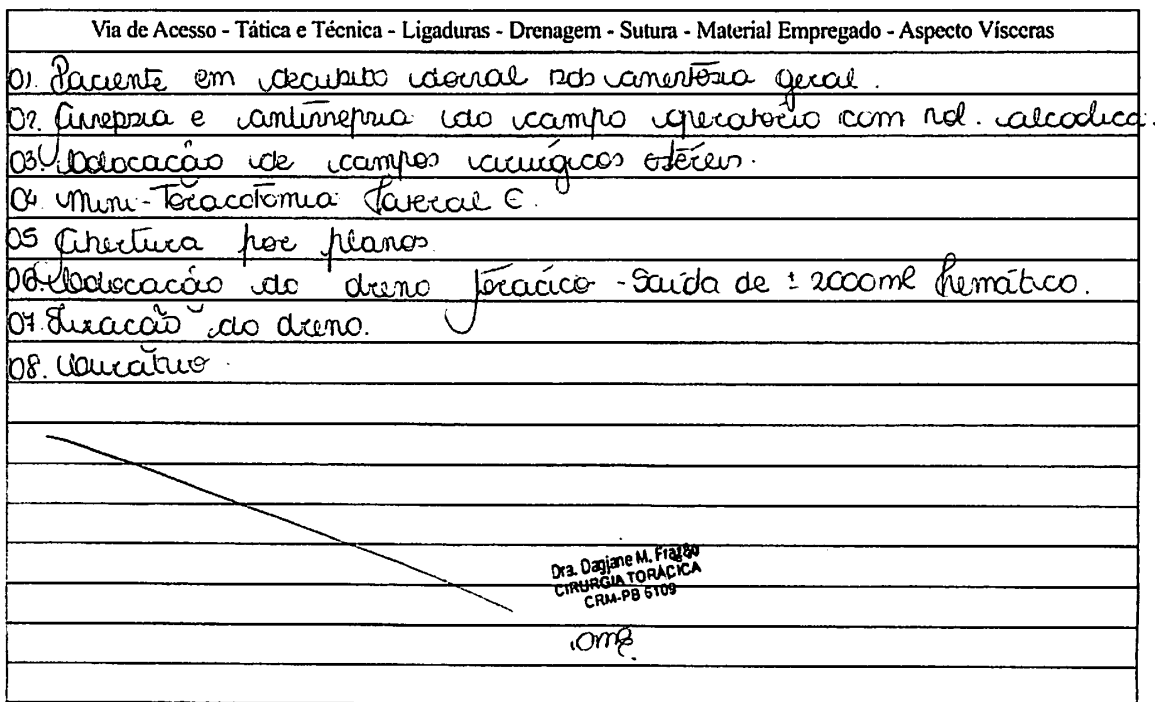 Via de Acesso - Tática e Técnica - Ligaduras - Drenagem - Sutura - Material Empregado - Aspecto Vísceras
01. Paciente em decubito dorsal sob anestesia geral.
02. Assepsia e antissepsia do campo operatório com sol. alcoolica.
03. Colocação de campos cirúgicos estéreis.
04. Mini-Toracotomia Lateral E.
05 Abertura por planos.
06. Colocação do dreno torácico - Saída de ± 2000ml hemático.
07. Fixação do dreno.
08. Curativo.
Dra. Dagjane M. Frazão
CIRURGIA TORÁCICA
CRM-PB 6109